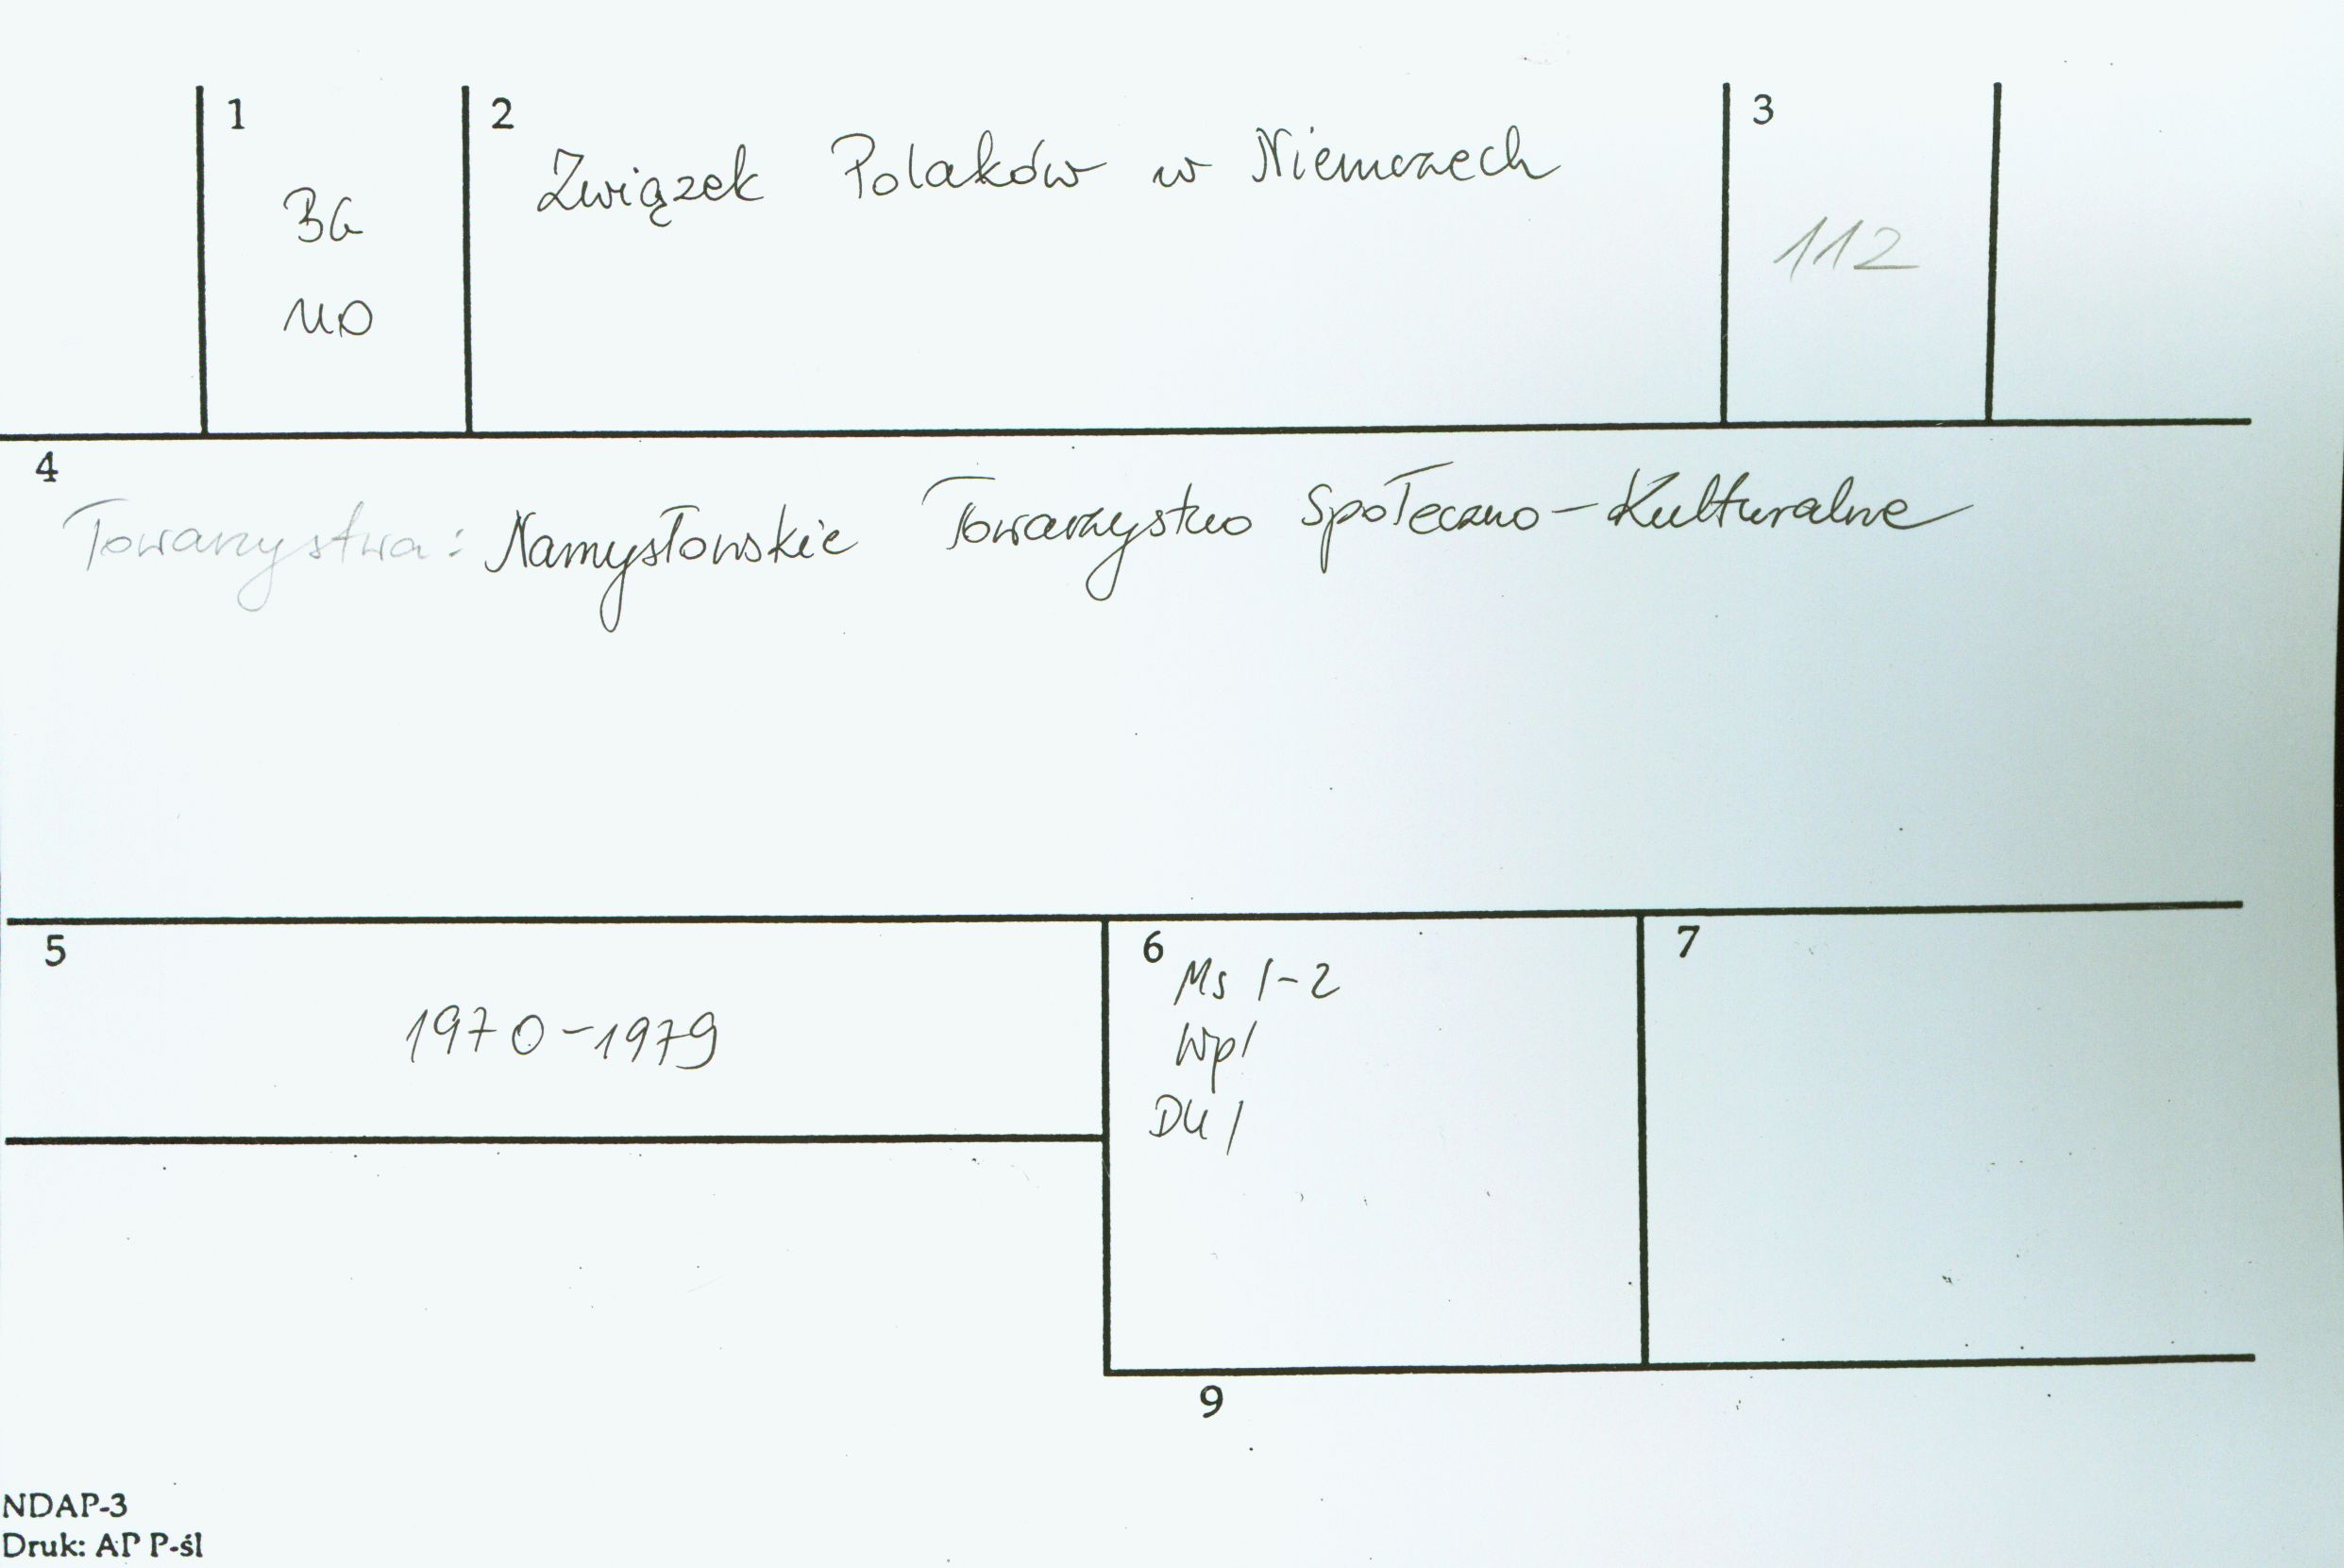 1
BG
MO
2
Związek Polaków w Niemczech
3
112
4
Towarzystwa: Namysłowskie Towarzystwo Społeczno-Kulturalne
5
1970-1979
6
Ms 1-2
Wp 1
DU 1
7
9
NDAP-3
Druk: AP P-śl